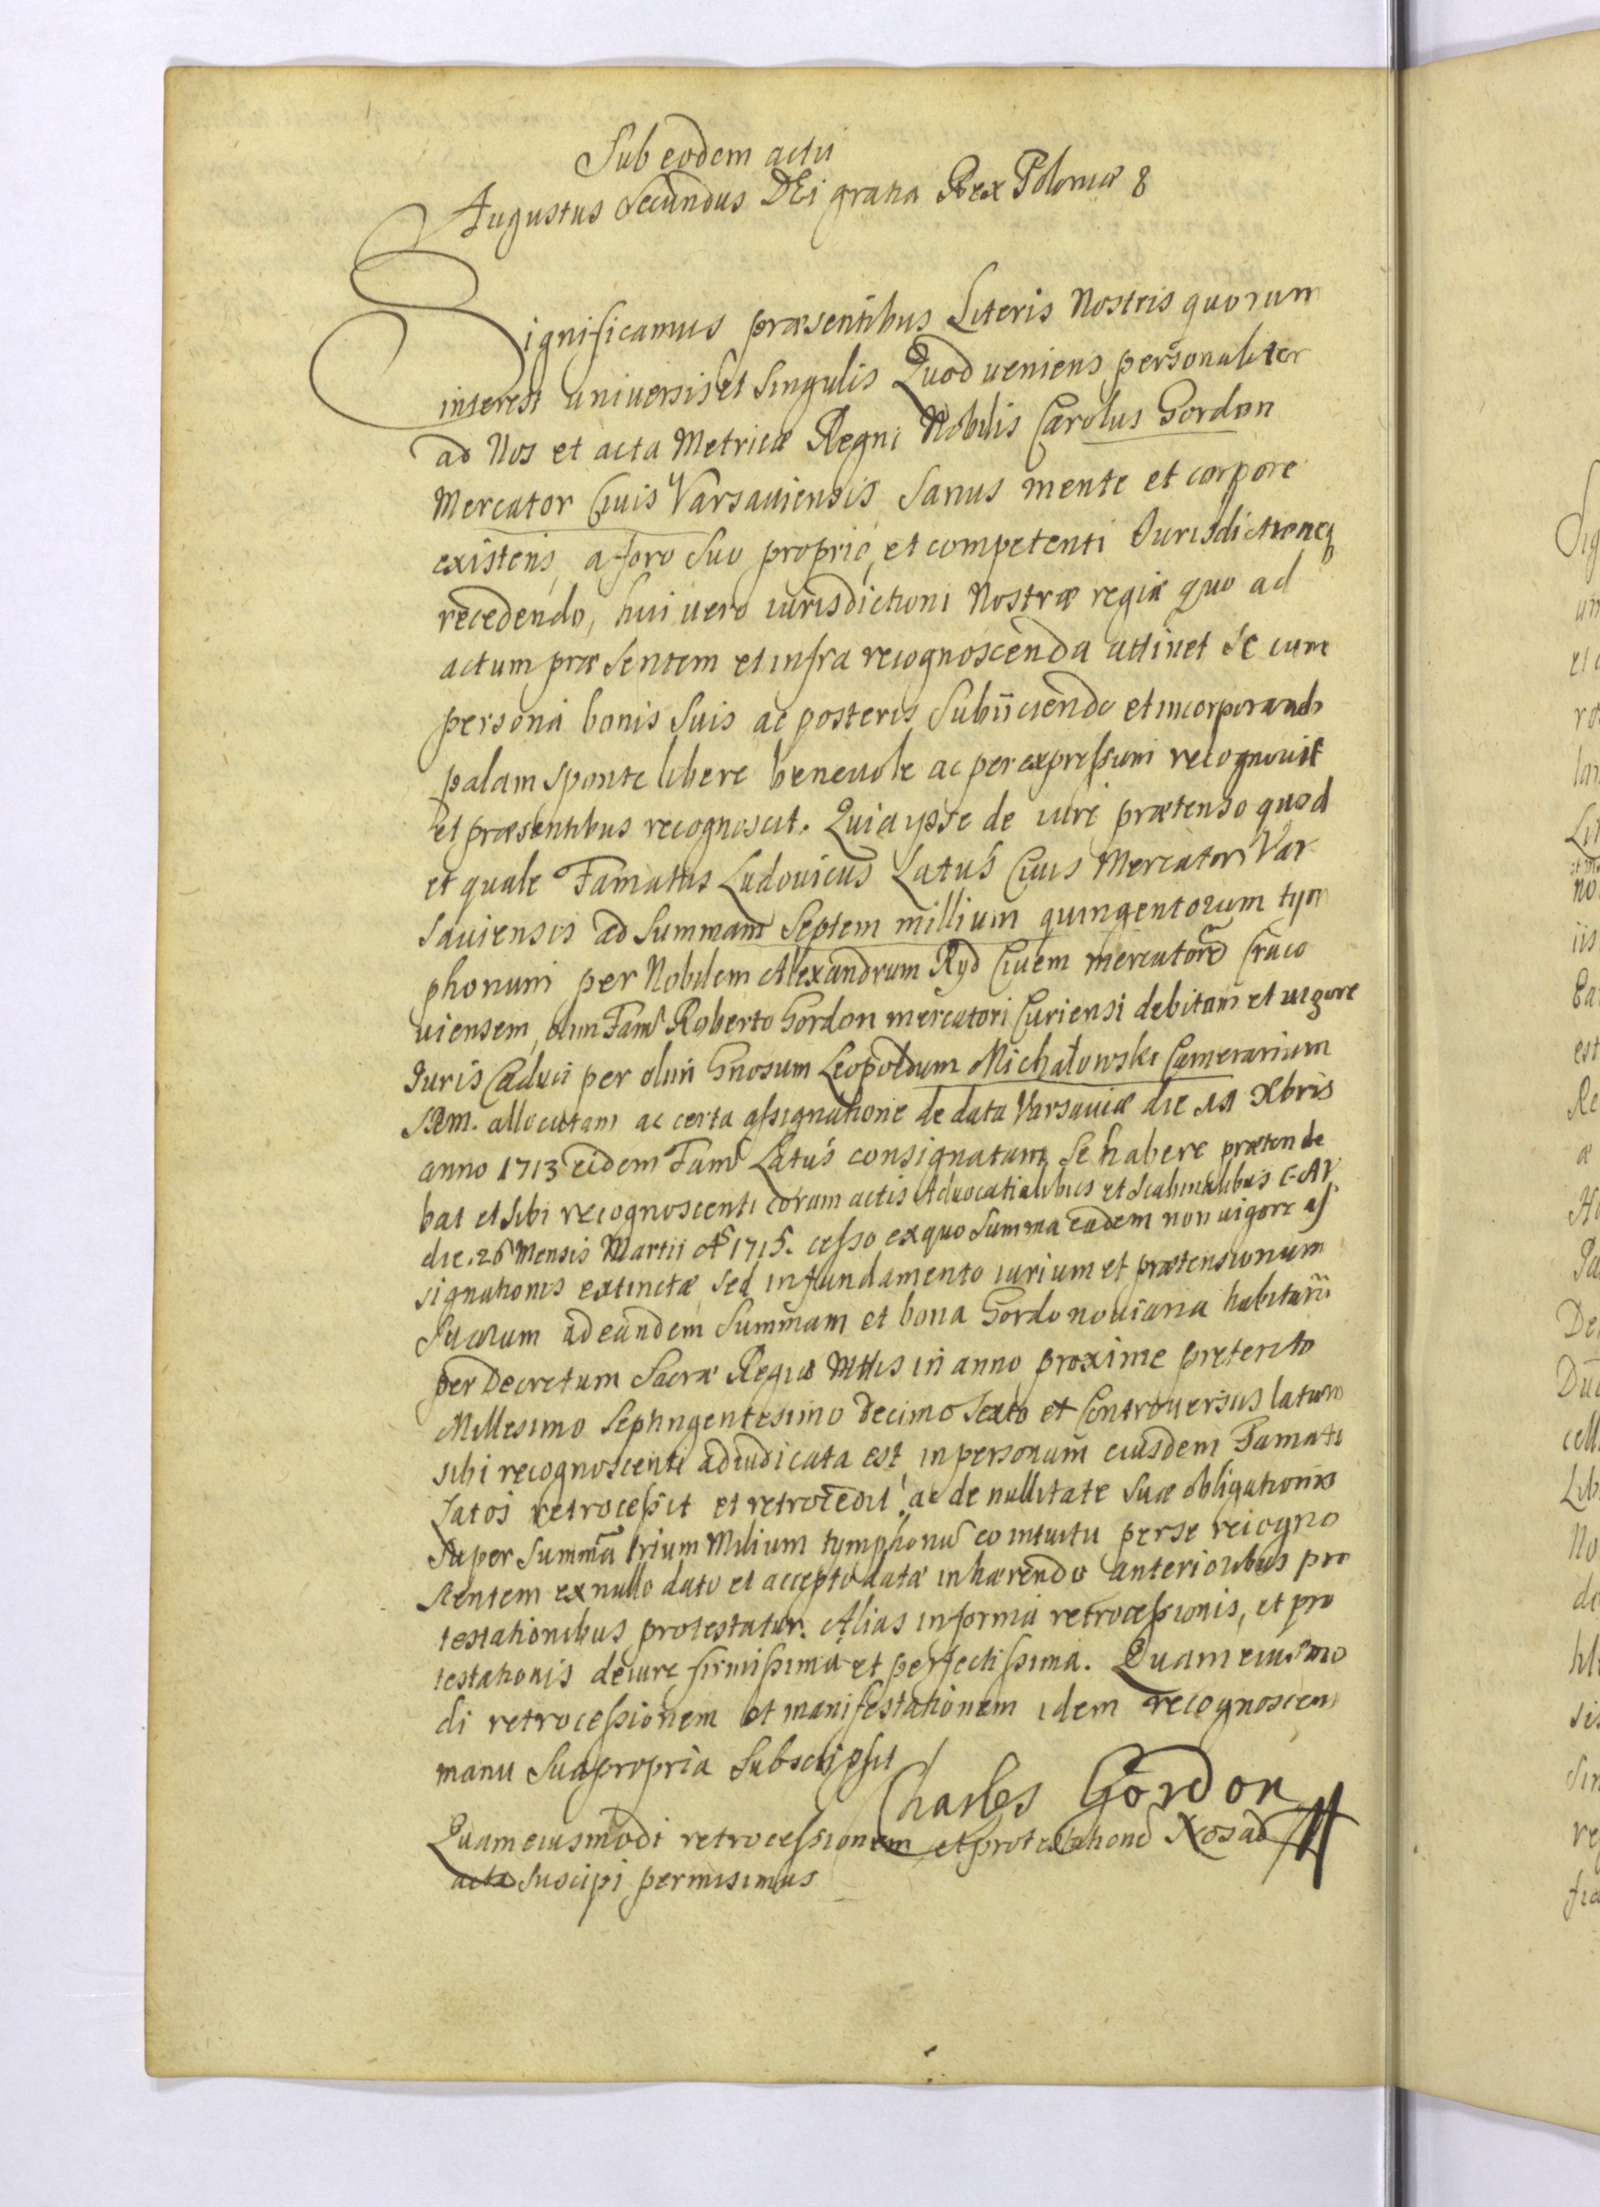 Sub eodem actu
Augustus Secundus DEi gratia Rex Poloniæ &
Significamus præsentibus Literis Nostris quorum
interest universis et singulis Quod veniens personaliter
ad Nos et acta Metricæ Regni Nobilis Carolus Gordon
Mercator Civis Varsaviensis sanus mente et corpore
existens, a foro suo proprio, et competenti Iurisdictioneq
recedendo, huic vero iurisdictioni Nostræ regiæ quo ad
actum præsentem et infra recognoscenda attinet se cum
persona bonis suis ac posteris subiiciendo et incorporando
palam sponte libere benevole ac per expressum recognovit
et præsentibus recognoscit. Quia ipse de iure prætenso quod
et quale Famatus Ludovicus Latus Civis Mercator Var
saviensis ad summam septem millium quingentorum tym
phonum per Nobilem Alexandrum Ryd Civem mercatorē Craco
viensem, olim Fam Roberto Gordon mercatori Curiensi debitam et vigore
Iuris Caduci per olim Gnosum Leopoldum Michałowski Camerarium
SRM. allocutam ac certa assignatione de data Varsaviæ die 19 Xbris
anno 1713 eidem Fam Latus consignatam se habere prætende
bat et sibi recognoscenti coram actis Advocatialibus et Scabinalibus C.AV.
die 26 Mensis Martii Aº 1715. cesso ex quo summa eadem non vigore as
signationis extinctæ sed in fundamento iurium et prætensionum
suarum ad eandem summam et bona Gordonoviana habitarū
per Decretum Sacræ Regiæ Mttis in anno proxime preterito
Millesimo Septingentesimo decimo sexto et Controversiis latum
sibi recognoscenti adiudicata est in personam eiusdem Famati
Latos retrocessit et retrocedit ac de nullitate suæ obligationis
super summā trium Milium tymphonū eo intuitu per se recogno
scentem ex nullo dato et accepto datæ inhærendo anterioribus pro
testationibus protestatur. Alias in forma retrocessionis, et pro
testationis de iure firmissima et perfectissima. Quam eiusmo
di retrocessionem et manifestationem idem recognoscens
manu sua propria subscripsit
Charles Gordon
Quam eiusmodi retrocessionem et protestationē Nos ad
acta suscipi permisimus